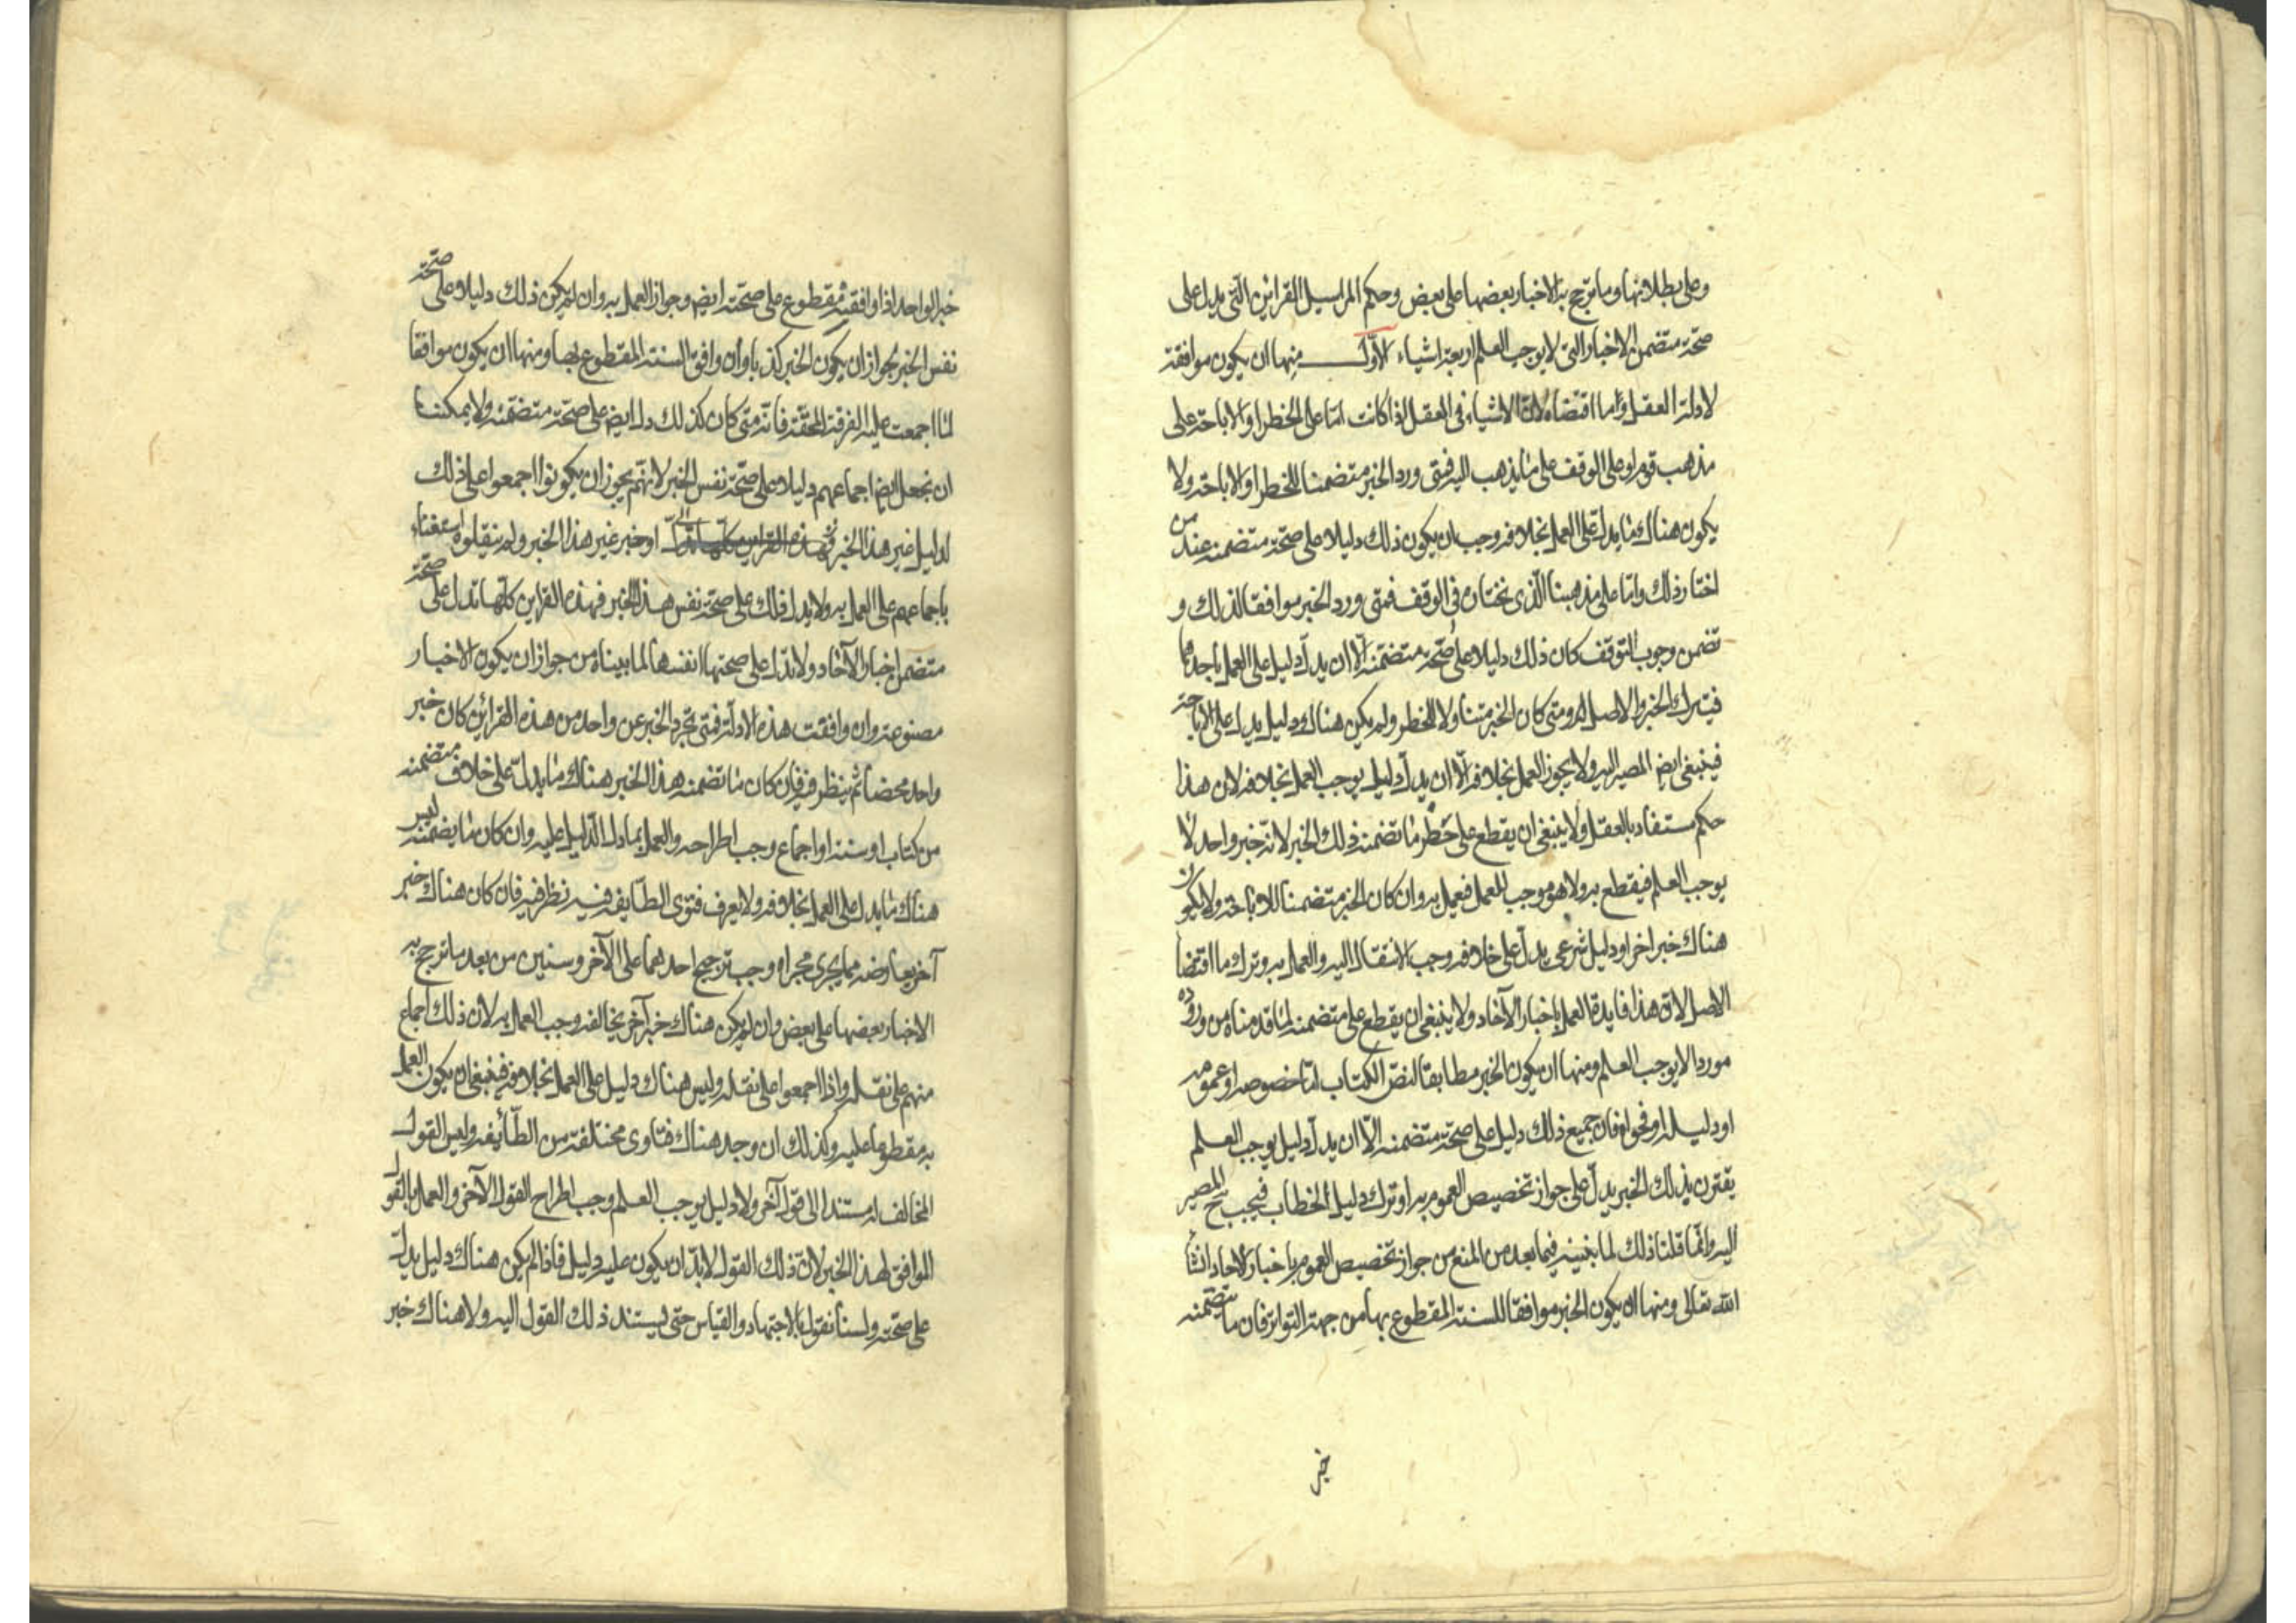 وعلى بطلانها وما ترجح به الاخبار بعضها على بعض وحكم المراسيل القرائن التى يدل على
صحة متضمن الاخبار التى لا يوجب العلم اربعة اشياء الاول منها ان يكون موافقة
لادلة العقل وما اقتضاه لان الاشياء فى العقل اذا كانت اما على الخطر او الاباحة على
مذهب قوم او على الوقف على ما يذهب اليه فمتى ورد الخبر متضمنا للخطر او الاباحة ولا
يكون هناك ما يدل على العمل بخلافه وجب ان يكون ذلك دليلا على صحة متضمنه عند من
اختار ذلك واما على مذهبنا الذى نختاره فى الوقف فمتى ورد الخبر موافقا لذلك و
تضمن وجوب التوقف كان ذلك دليلا على صحة متضمنه الا ان يدل دليل على العمل باحدهما
فيترك الخبر والاصل له ومتى كان الخبر متناولا للخطر ولم يكن هناك دليل يدل على الاباحة
فينبغى ايض المصير اليه ولا يجوز العمل بخلافه الا ان يدل دليل يوجب العمل بخلافه لان هذا
حكم مستفاد بالعقل ولا ينبغى ان يقطع على خطر ما تضمنه ذلك الخبر لانه خبر واحد لا
يوجب العلم فيقطع به ولا هو موجب للعمل فيعمل به وان كان الخبر متضمنا للاباحة ولا يكون
هناك خبر اخر او دليل شرعى يدل على خلافه وجب الانتقال اليه والعمل به وترك ما اقتضا
الاصل لان هذا فايدة العمل باخبار الآحاد ولا ينبغى ان يقطع على متضمنه لما قدمناه من وروده
موردا لا يوجب العلم ومنها ان يكون الخبر مطابقا لنص الكتاب اما خصوصه او عمومه
او دليله او فحواه فان جميع ذلك دليل على صحة متضمنه الا ان يدل دليل يوجب العلم
يقترن بذلك الخبر يدل على جواز تخصيص العموم به او ترك دليل الخطاب فيجب ح المصير
اليه وانما قلنا ذلك لما نبينه فيما بعد من المنع من جواز تخصيص العموم باخبار الاحاد انشا
الله تعالى ومنها ان يكون الخبر موافقا للسنة المقطوع بها من جهة التواتر فان ما يتضمنه
خبر
خبر الواحد اذا وافقه مقطوع على صحته ايض وجواز العمل به وان لم يكن ذلك دليلا على صحة
نفس الخبر لجواز ان يكون الخبر كذبا وان وافق السنة المقطوع بها ومنها ان يكون موافقا
لما اجمعت عليه الفرقة المحقة فانه متى كان كذلك دل ايض على صحة متضمنه ولا يمكننا
ان نجعل ايض اجماعهم دليلا على صحة نفس الخبر لانهم يجوز ان يكونوا اجمعوا على ذلك
لدليل غير هذا الخبر او خبر غير هذا الخبر ولم ينقلوه استغناء
باجماعهم على العمل به ولا يدل ذلك على صحة نفس هذا الخبر فهذه القراين كلها تدل على صحة
متضمن اخبار الآحاد ولا تدل على صحتها انفسها لما بيناه من جواز ان يكون الاخبار
مصنوعة وان وافقت هذه الادلة فمتى تجرد الخبر عن واحد من هذه القرائن كان خبر
واحد محضا ثم ينظر فيه فان كان ما تضمنه هذا الخبر هناك ما يدل على خلاف متضمنه
من كتاب او سنة او اجماع وجب اطراحه والعمل بما دل الدليل عليه وان كان ما يضمنه ليس
هناك ما يدل على العمل بخلافه ولا يعرف فتوى الطايفة فيه نظر فيه فان كان هناك خبر
آخر يعارضه مما يجرى مجراه وجب ترجيح احدهما على الآخر وسنبين من بعد ما ترجح به
الاخبار بعضها على بعض وان لم يكن هناك خبر آخر يخالفه وجب العمل به لان ذلك اجماع
منهم على نقله واذا اجمعوا على نقله وليس هناك دليل على العمل بخلافه فينبغى ان يكون العمل
به مقطوعا عليه وكذلك ان وجد هناك فتاوى مختلفة من الطائفة وليس القول
المخالف له مستندا الى قول آخر ولا دليل يوجب العلم وجب اطراح القول الآخر والعمل بالقول
الموافق لهذا الخبر لان ذلك القول لابد ان يكون عليه دليل فاذا لم يكن هناك دليل يدل
على صحته ولسنا نقول بالاجتهاد والقياس حتى ليستند ذلك القول اليه ولا هناك خبر